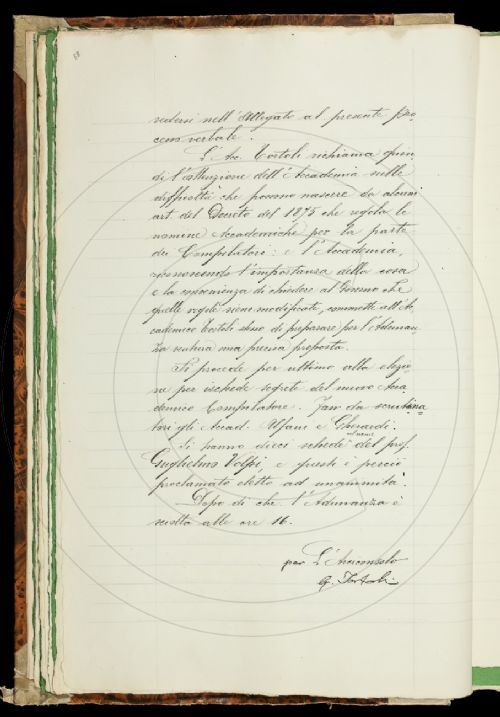 vedersi nell'Allegato al presente pro-
cesso verbale.
L'Ac. Tortoli richiama quin-
di l'attenzione dell'Accademia sulle
difficoltà che possono nascere da alcuni
art. del Decreto del 1875 che regola le
nomine Accademiche per la parte
dei Compilatori: e l'Accademia,
riconoscendo l'importanza della cosa
e la convenienza di chiedere al Governo che
quelle regole siano modificate, commette all'Ac-
cademico Tortoli stesso di preparare per l'Adunan-
za ventura una precisa proposta.
Si procede per ultimo alla elezio-
ne per ischede segrete del nuovo Acca-
demico Compilatore. Fan da scrutina-
tori gli Accad. Alfani e Gherardi.
Si hanno dieci schede col nome del prof.
Guglielmo Volpi, e questi è perciò
proclamato eletto ad unanimità.
Dopo di che l'Adunanza è
sciolta alle ore 16.
per L'Arciconsolo
G. Tortoli